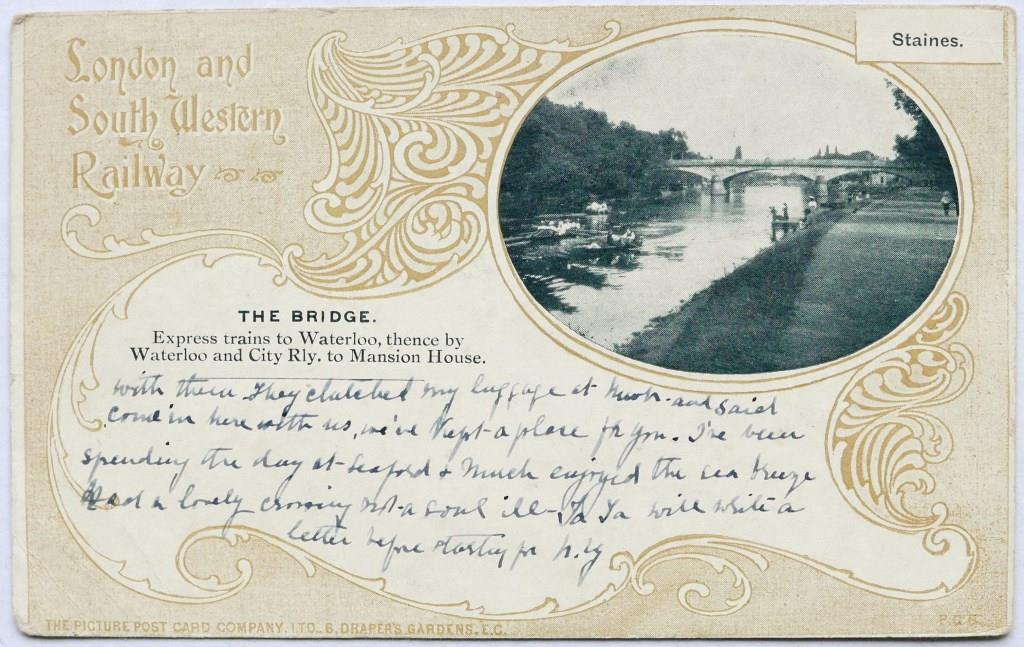 London and
South Western
Railway
Staines.
THE BRIDGE.
Express trains to Waterloo, thence by
Waterloo and City Rly. to Mansion House.
with them. They clutched my luggage at and said
come in here with us, we've kept a place for you. I've been
spending the day at Seaford & much enjoyed the sea breeze
Had a lovely crossing not a soul ill - Ta Ta will write a
letter before starting for N.Y
THE PICTURE POST CARD COMPANY, LTD. 6, DRAPER'S GARDENS, E.C.